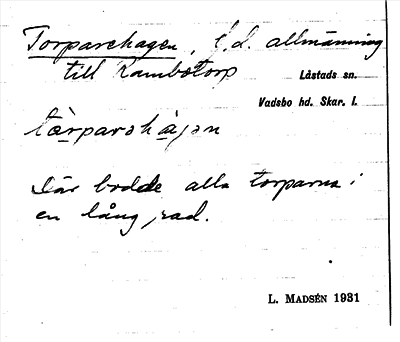 Torparehagen, f.d. allmänning
till Rambotorp
Låstads sn.
Vadsbo hd. Skar. l.
tòrparəhàgən
Där bodde alla torparna i
en lång rad.
L. Madsén 1931